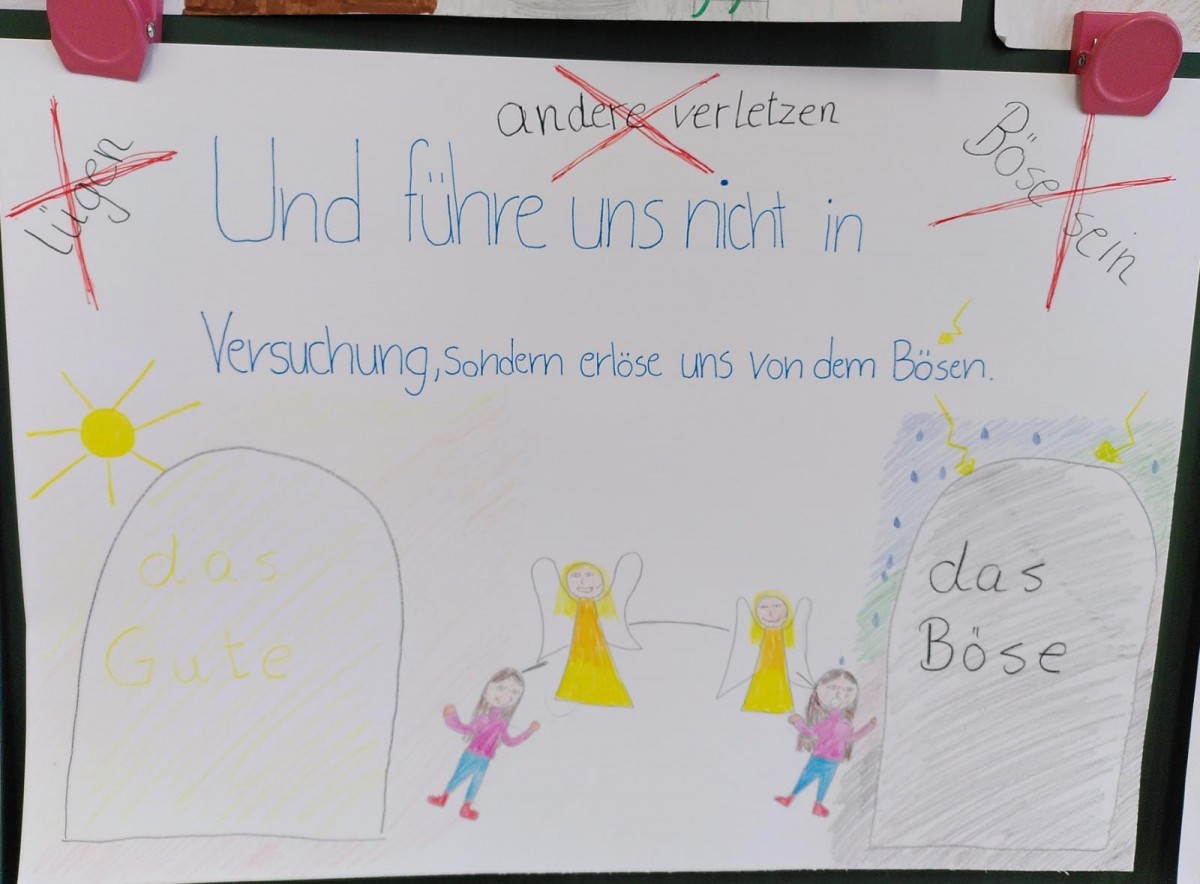 andere verletzen
Lügen
Böse sein
Und führe uns nicht in
Versuchung, sondern erlöse uns von dem Bösen.
das
Gute
das
Böse